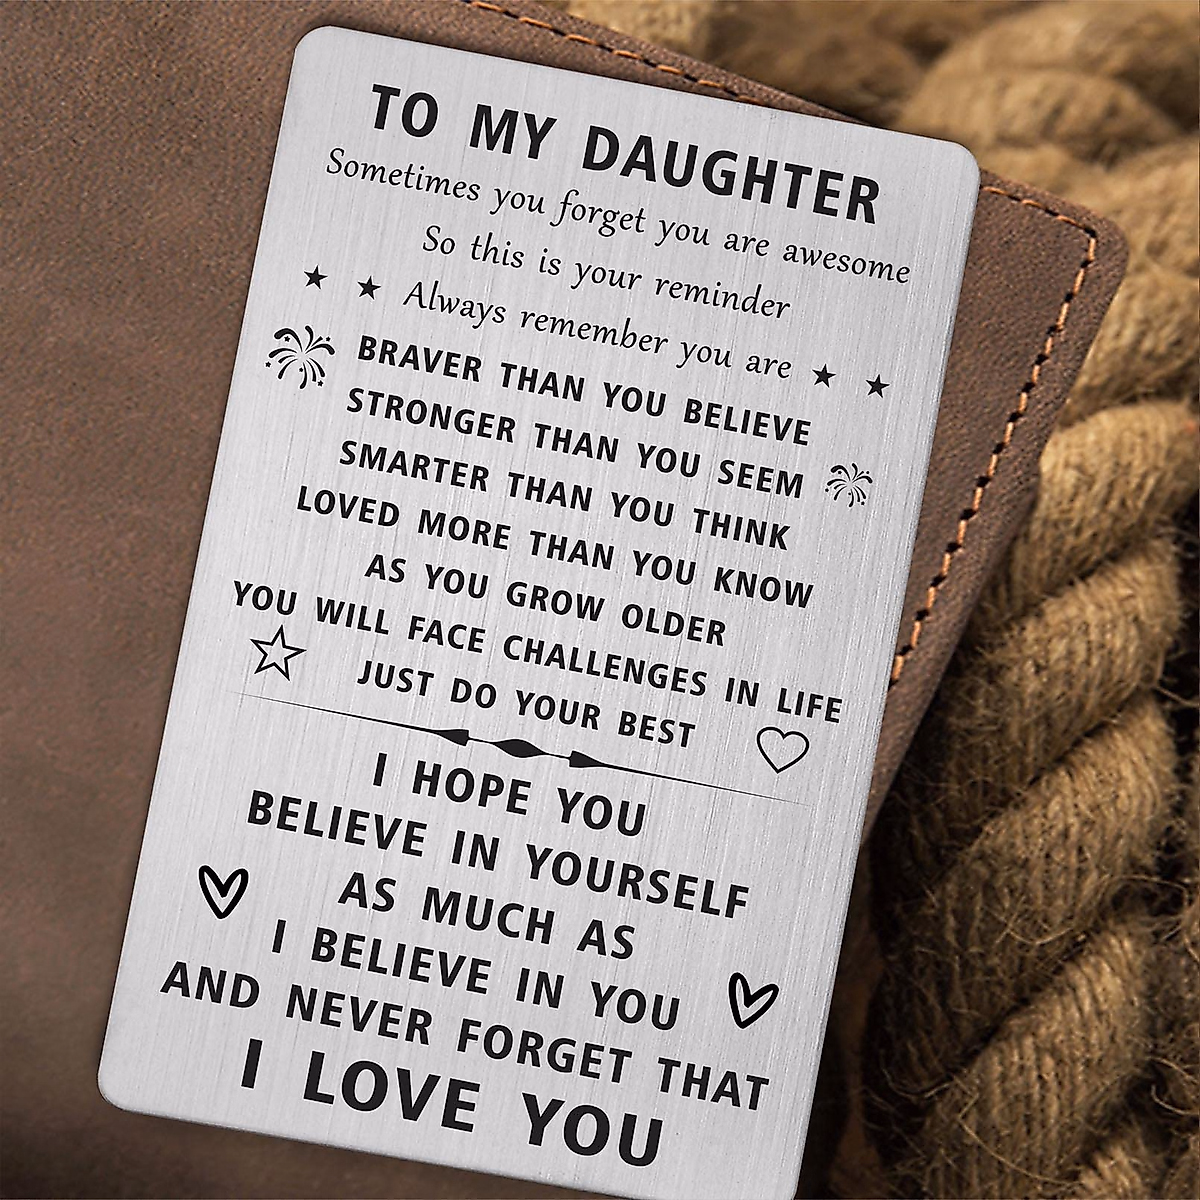 TO MY DAUGHTER
Sometimes you forget you are awesome
So this is your reminder
Always remember you are
BRAVER THAN YOU BELIEVE
STRONGER THAN YOU SEEM
SMARTER THAN YOU THINK
LOVED MORE THAN YOU KNOW
AS YOU GROW OLDER
YOU WILL FACE CHALLENGES IN LIFE
JUST DO YOUR BEST
I HOPE YOU
BELIEVE IN YOURSELF
AS MUCH AS
I BELIEVE IN YOU
AND NEVER FORGET THAT
I LOVE YOU